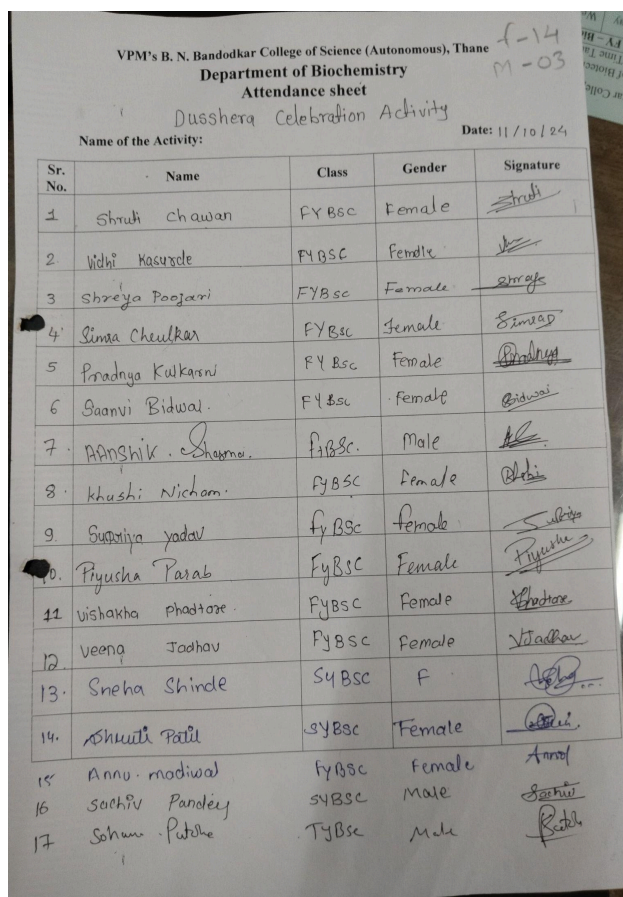 f-14
VPM's B. N. Bandodkar College of Science (Autonomous), Thane
M-03
Department of Biochemistry
Attendance sheet
Dusshera Celebration Activity
Name of the Activity: Date: 11/10/24
Sr. No. Name Class Gender Signature
1 Shruti Chawan FYBSC Female Shruti
2 Vidhi Kasurde FYBSC Female
3 Shreya Poojari FYBsc Female Shreya
4 Simra Cheulkar FYBsc Female Simrap
5 Pradnya Kulkarni FYBsc Female Pradnya
6 Saanvi Bidwai. FYBsc Female Bidwai
7. AAnshik. Sharma. fyBSc. Male
8. Khushi Nicham. FyBSC Female
9. Supriya yadav fyBSc female Supriya
10. Piyusha Parab FyBSC Female Piyusha
11 vishakha phadtare. FyBSC Female Phadtare
12 veena Jadhav FyBSC Female VJadhav
13. Sneha Shinde SyBSC F
14. Shruti Patil SYBSC Female
15 Annu. madiwal FyBSc Female Annu
16 sachiv Pandey SYBSC Male Sachiv
17 Soham TyBsc Male